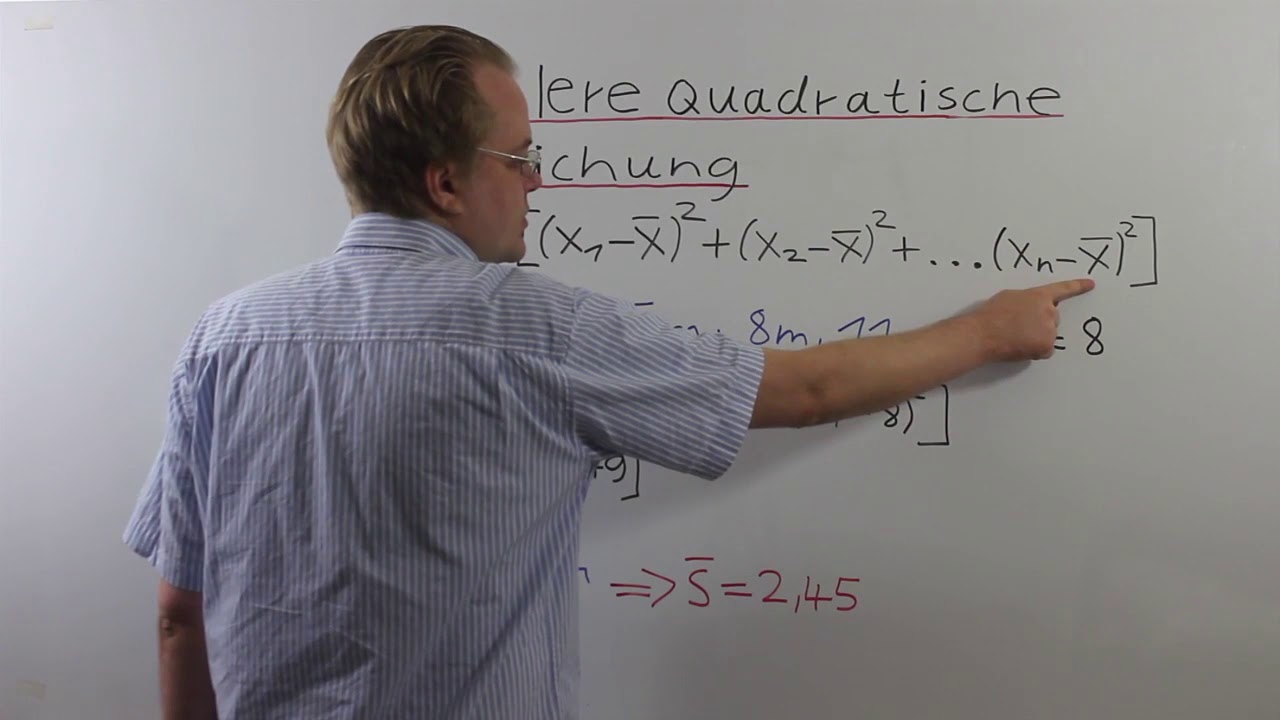 lere Quadratische
ichung
[(x₁-x̅)²+(x₂-x̅)²+...(xₙ-x̅)²]
8m, 11 = 8
8)²]
+9]
=> s̅=2,45